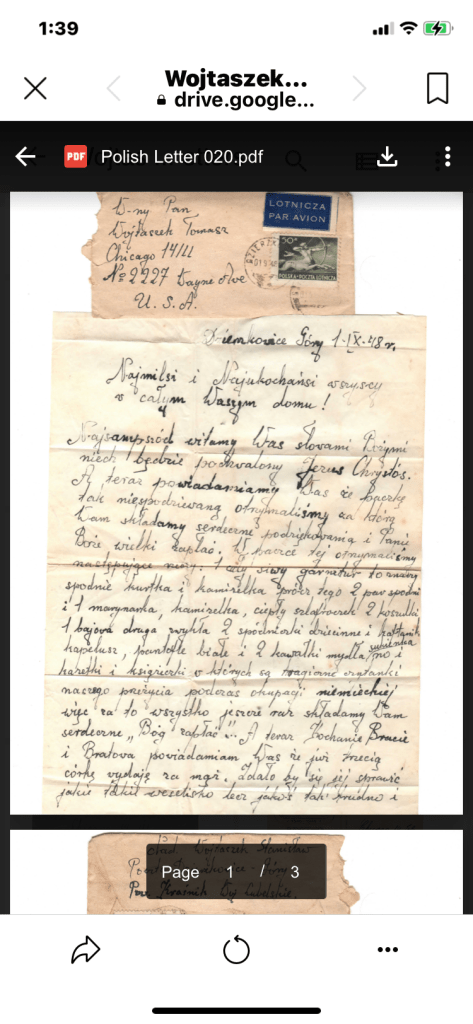 1:39
Wojtaszek...
drive.google...
PDF Polish Letter 020.pdf
W-ny Pan
Wojtaszek Tomasz
Chicago 14/Ill
No 2227 Wayne Ave
U. S. A.
LOTNICZA
PAR AVION
50 zł
POLSKA•POCZTA LOTNICZA
Dzierzkowice Góry 1-IX-48 r.
Najmilsi i Najukochańsi wszyscy
w całym Waszym domu!
Najsampszód witamy Was słowami Bożymi
niech będzie pochwalony Jezus Chrystós.
A teraz powiadamiamy Was że paczkę
tak niespodziewaną otrzymaliśmy za którą
Wam składamy serdeczne podziękowania i Panie
Boże wielki zapłać. W paczce tej otrzymaliśmy
następujące rzeczy: 1 siwy garnetur to znaczy
spodnie kurtka i kamizelka prócz tego 2 par spodni
i 1 marynarka, kamizelka, ciepły 2 koszulki
1 bajova druga zwykła 2 spódniczki dziecinne i kaftanik
sukienka
kapelusz, pantofle białe i 2 kawałki mydła, no i
gazetki i książeczki w których są tragiczne czytanki
naszego przeżycia podczas okupacji niemieckiej
więc za to wszystko jeszcze raz składamy Wam
serdeczne „Bóg zapłać". A teraz Kochanie Bracie
i Bratowa powiadamiam Was że już trzecią
córkę wydaję za mąż. Zdało by się jej sprawić
jakie takie weselisko lecz jakoś tak trudno i
Wojtaszek Stanisław
Page 1 / 3
Pow. Kraśnik Woj Lubelskie.